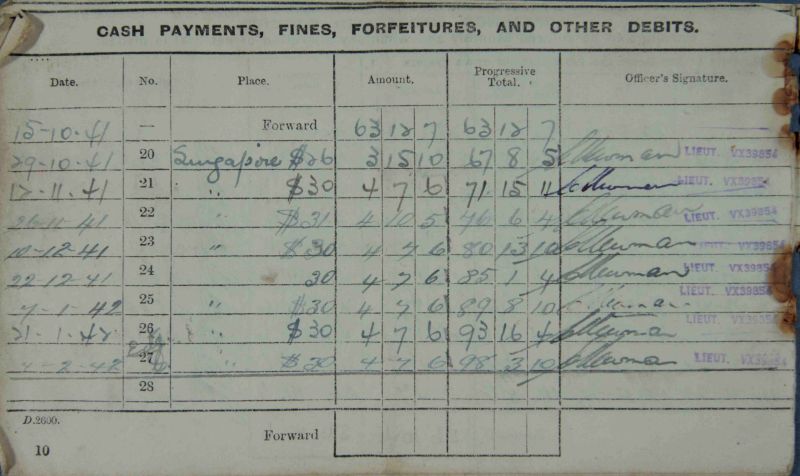 CASH PAYMENTS, FINES, FORFEITURES, AND OTHER DEBITS.
Date. No. Place. Amount. Progressive Total. Officer's Signature.
15-10-41 — Forward 63 12 7 63 12 7
29-10-41 20 Singapore $26 3 15 10 67 8 5 Newman LIEUT. VX39854
12-11-41 21 " $30 4 7 6 71 15 11 Newman LIEUT. VX39854
26-11-41 22 $31 4 10 5 76 6 4 Newman LIEUT. VX39854
10-12-41 23 " $30 4 7 6 80 13 10 Newman LIEUT. VX39854
22-12-41 24 30 4 7 6 85 1 4 Newman LIEUT. VX39854
7-1-42 25 " $30 4 7 6 89 8 10 Newman LIEUT. VX39854
21-1-42 26 " $30 4 7 6 93 16 4 Newman LIEUT. VX39854
4-2-42 27 " $30 4 7 6 98 3 10 Newman LIEUT. VX39854
28
D.2600.
10 Forward